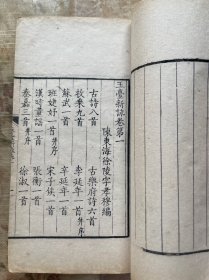 玉臺新詠卷第一
陳東海徐陵字孝穆編
古詩八首
古樂府詩六首
枚乘九首
李延年一首并序
蘇武一首
辛延年一首
班婕妤一首并序
宋子侯一首
漢時童謠一首
張衡一首
秦嘉三首并序
徐淑一首